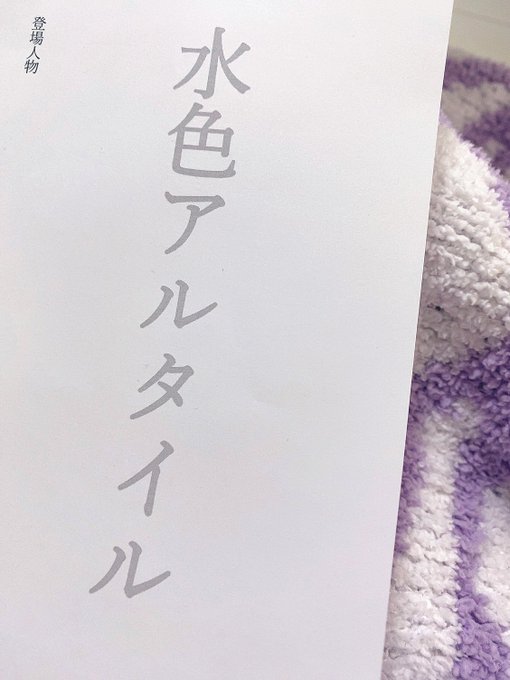 水色アルタイル
登場人物